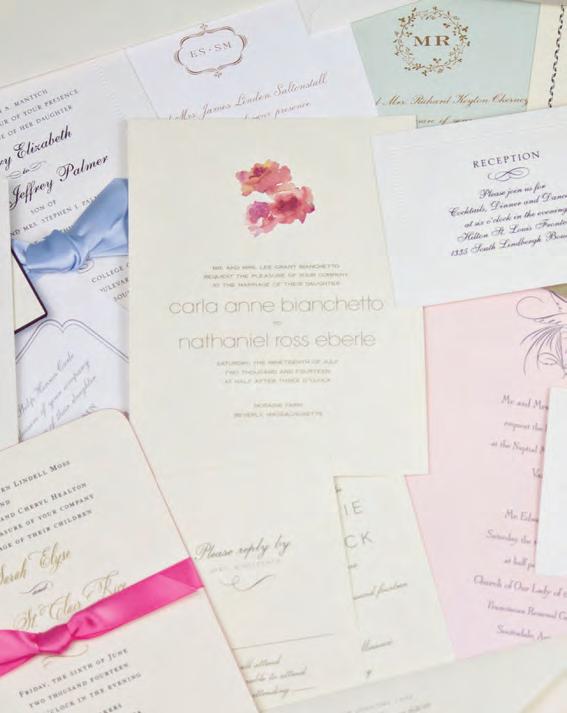 ES·SM
Mrs. James Linden Saltonstall
presence
MR
Mrs. Richard Keyton
N A. MANTYCH
OUR OF YOUR PRESENCE
OF HER DAUGHTER
ry Elizabeth
to
Jeffrey Palmer
SON OF
AND MRS. STEPHEN J.
COLLEGE
RECEPTION
Please join us for
Cocktails, Dinner and
at six o'clock in the evening
Hilton St. Louis
1335 South Lindbergh
MR. AND MRS. LEE GRANT BIANCHETTO
REQUEST THE PLEASURE OF YOUR COMPANY
AT THE MARRIAGE OF THEIR DAUGHTER
carla anne bianchetto
TO
nathaniel ross eberle
SATURDAY, THE NINETEENTH OF JULY
TWO THOUSAND AND FOURTEEN
AT HALF AFTER THREE O'CLOCK
MORAINE FARM
BEVERLY, MASSACHUSETTS
of your company
of their daughter
Mr. and
request the
at the Nuptial
Mr.
Saturday the
at half
Church of Our Lady of
Scottsdale,
EN LINDELL MOSS
AND
AND CHERYL HEALTON
EASURE OF YOUR COMPANY
AGE OF THEIR CHILDREN
Sarah Elyse
and
St. Clair Rice
FRIDAY, THE SIXTH OF JUNE
TWO THOUSAND FOURTEEN
O'CLOCK IN THE EVENING
Please reply by
IE
CK
attend
to attend